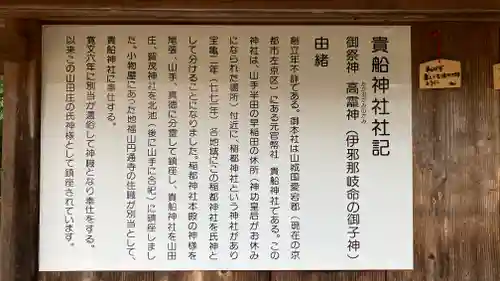 貴船神社社記
御祭神　高龗神（伊邪那岐命の御子神）
たかおかみのかみ
由緒
創立年不詳である。御本社は山城国愛宕郡（現在の京
都市左京区）にある元官幣社　貴船神社である。この
神社は、山手半田の早稲田の休所（神功皇后がお休み
になられた場所）付近に、稲都神社という神社があり
宝亀二年（七七二年）各地域にこの稲都神社を氏神と
して分けることになりました。稲都神社本殿の神様を
尾張、山手、真徳に分霊して鎮座し、貴船神社を山田
庄、賀茂神社を北池（後に山手に合祀）に鎮座しまし
た。小物屋にあった地福山円通寺の住職が別当として、
貴船神社に奉仕する。
寛文六年に別当が還俗して神職となり奉仕をする。
以来この山田庄の氏神様として鎮座されています。